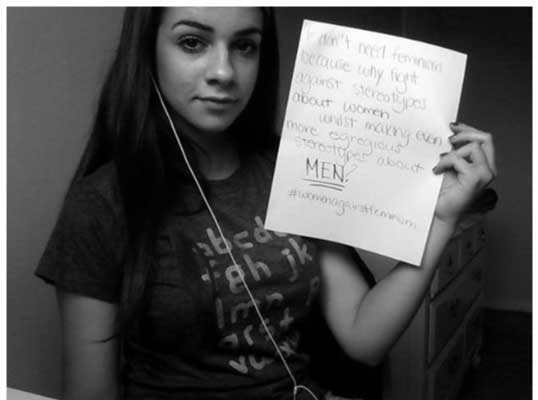 I don't need feminism
because why fight
against stereotypes
about women
whilst making even
more egregious
stereotypes about
MEN?
#womenagainstfeminism
abcde
fgh jk
lmn